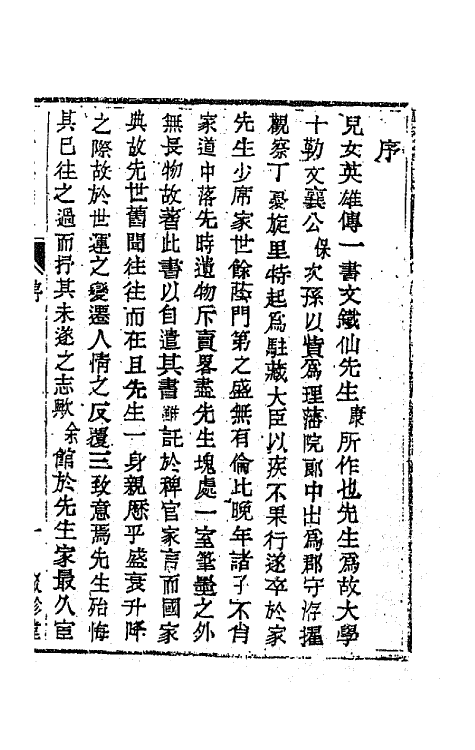 序
兒女英雄傳一書文鐵仙先生康所作也先生爲故大學
士勒文襄公保次孫以貲爲理藩院郎中出爲郡守洊擢
觀察丁憂旋里特起爲駐藏大臣以疾不果行遂卒於家
先生少席家世餘蔭門第之盛無有倫比晚年諸子不肖
家道中落先時遺物斥賣畧盡先生塊處一室筆墨之外
無長物故著此書以自遣其書雖託於稗官家言而國家
典故先世舊聞往往而在且先生一身親歷乎盛衰升降
之際故於世運之變遷人情之反覆三致意焉先生殆悔
其已往之過而抒其未遂之志歟余館於先生家最久宦
序
一
聚珍堂